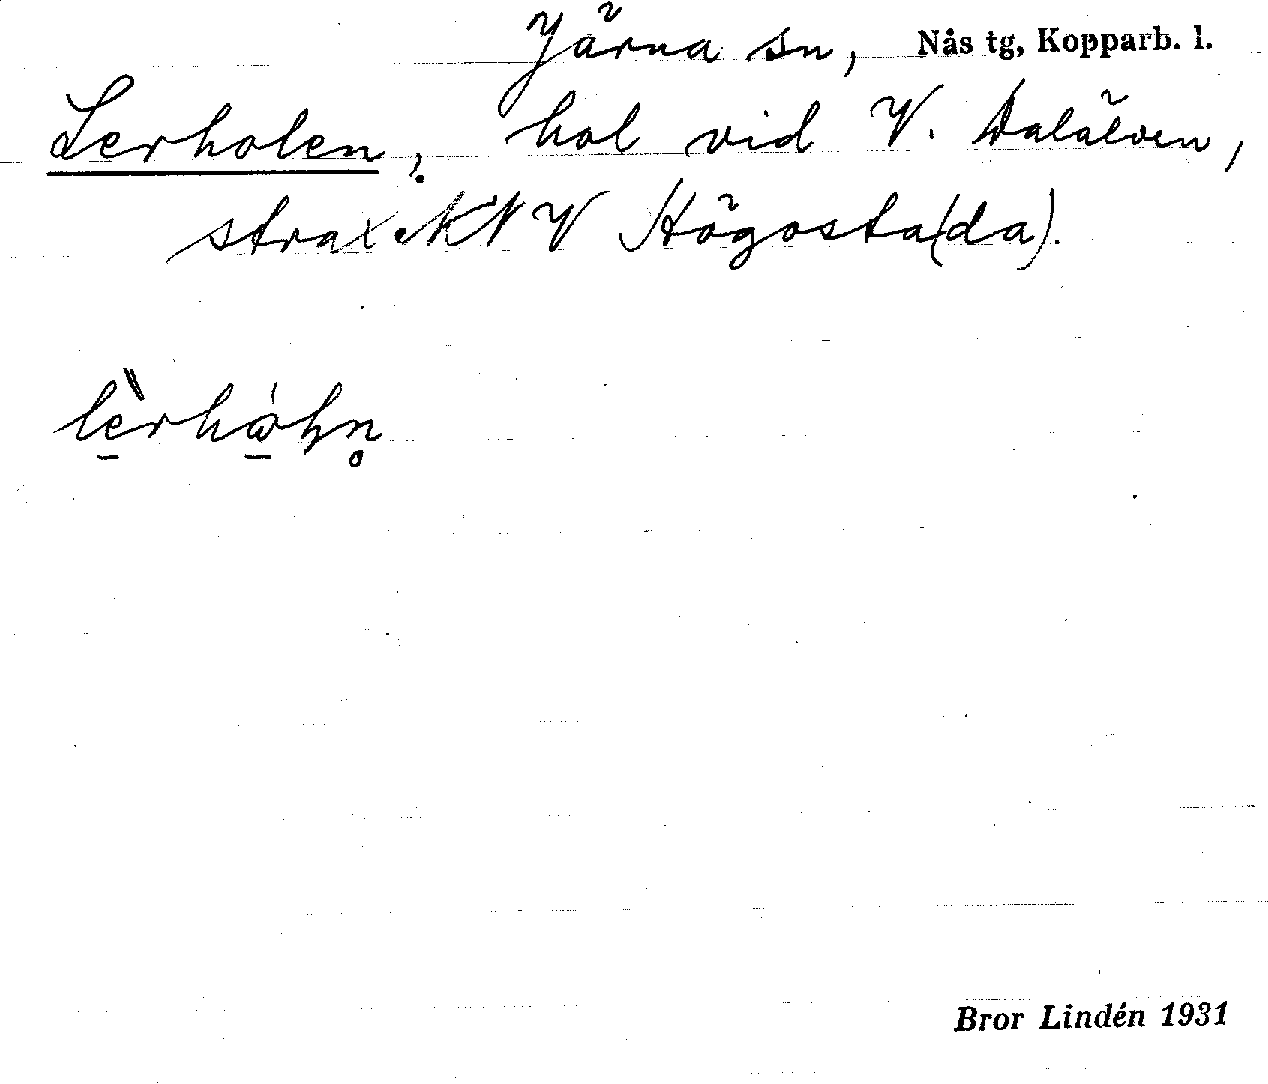 Järna sn, Nås tg, Kopparb. l.
Lerholen, hol vid V. Dalälven,
strax NNV Högosta(da).
Bror Lindén 1931